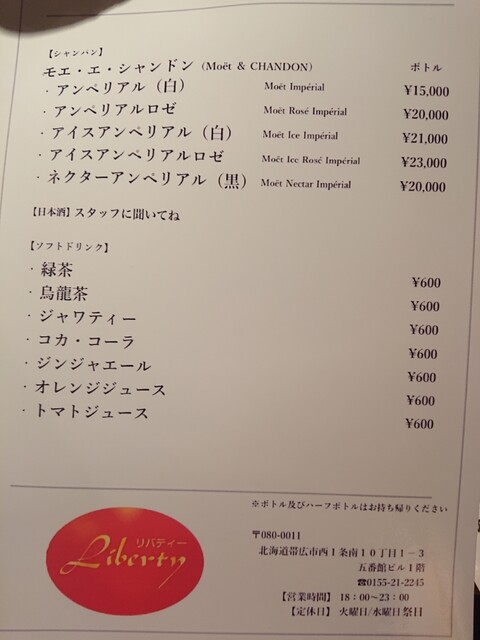 【シャンパン】
モエ・エ・シャンドン（Moët & CHANDON） ボトル
・アンペリアル（白） Moët Impérial ¥15,000
・アンペリアルロゼ Moët Rosé Impérial ¥20,000
・アイスアンペリアル（白） Moët Ice Impérial ¥21,000
・アイスアンペリアルロゼ Moët Ice Rosé Impérial ¥23,000
・ネクターアンペリアル（黒） Moët Nectar Impérial ¥20,000
【日本酒】スタッフに聞いてね
【ソフトドリンク】
・緑茶 ¥600
・烏龍茶 ¥600
・ジャワティー ¥600
・コカ・コーラ ¥600
・ジンジャエール ¥600
・オレンジジュース ¥600
・トマトジュース ¥600
※ボトル及びハーフボトルはお持ち帰りください
リバティー
Liberty
〒080-0011
北海道帯広市西1条南10丁目1-3
五番館ビル1階
☎0155-21-2245
【営業時間】 18：00～23：00
【定休日】 火曜日/水曜日祭日